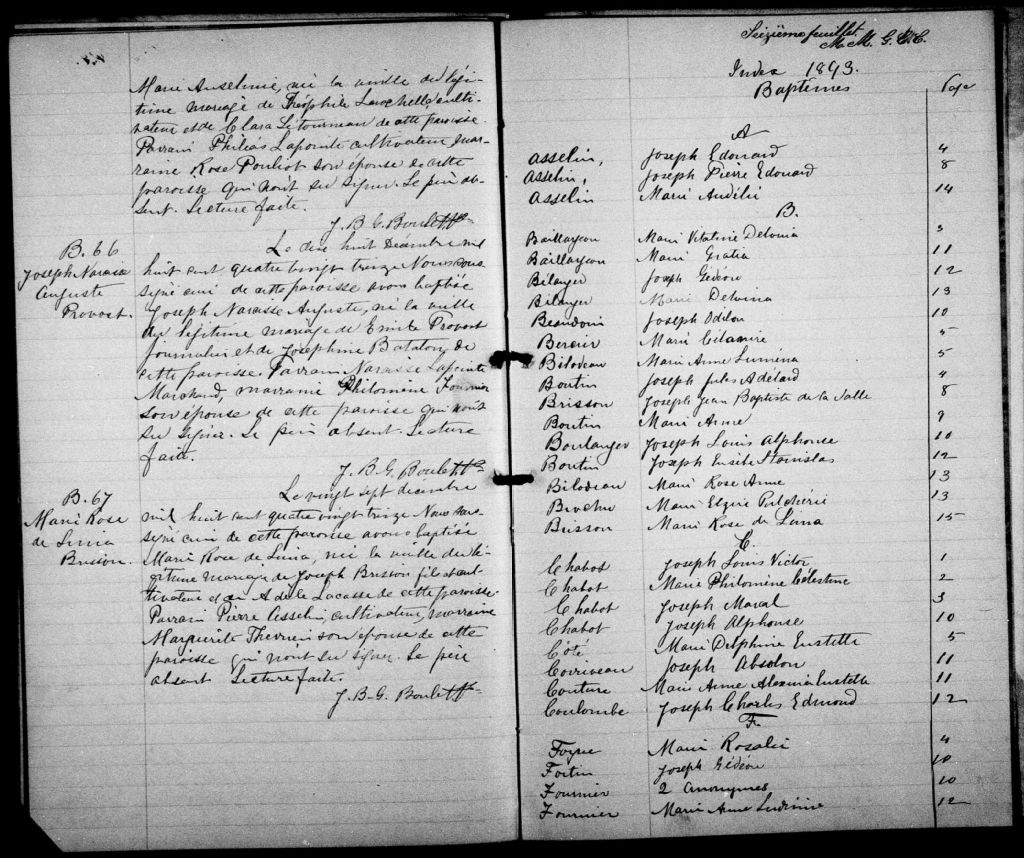 Marie Anselmie, née la veille du légi-
time mariage de Théophile Larochelle culti-
vateur et de Clara Letourneau de cette paroisse.
Parrain Philias Lapointe cultivateur, mar-
raine Rose Pouliot son épouse de cette
paroisse qui n'ont su signer. Le père ab-
sent. Lecture faite.
J. B. G. Boulet Ptre
B. 66
Joseph Narcisse
Auguste
Provost.
Le dix huit Décembre mil
huit cent quatre vingt treize Nous sous-
signé curé de cette paroisse avons baptisé
Joseph Narcisse Auguste, né la veille
du légitime mariage de Emile Provost
journalier et de Joséphine de
cette paroisse. Parrain Narcisse Lapointe
Marchand, marraine Philomène Fournier
son épouse de cette paroisse qui n'ont
su signer. Le père absent. Lecture
faite.
J. B. G. Boulet Ptre
B. 67
Marie Rose
de Lima
Brisson.
Le vingt sept décembre
mil huit cent quatre vingt treize Nous sous-
signé curé de cette paroisse avons baptisé
Marie Rose de Lima, née la veille du lé-
gitime mariage de Joseph Brisson fils cul-
tivateur et de Adele Lacasse de cette paroisse.
Parrain Pierre Asselin, cultivateur, marraine
Marguerite son épouse de cette
paroisse qui n'ont su signer. Le père
absent Lecture faite.
J. B. G. Boulet Ptre
Seizième feuillet.
Index 1893.
Baptêmes Page
A
Asselin, Joseph Edouard 4
Asselin, Joseph Pierre Edouard 8
Asselin Marie Audélie 14
B.
Baillargeon Marie Vitaline Delvina 3
Baillargeon Marie Gratia 11
Bélanger Joseph Gédéon 12
Bélanger Marie Delvina 13
Beaudoin Joseph Odilon 10
Bercier Marie 5
Bilodeau Marie Anne Luména 5
Boutin Joseph Jules Adélard 4
Brisson Joseph Jean Baptiste de la Salle 8
Boutin Marie Anne 9
Boulanger Joseph Louis Alphonse 10
Boutin Joseph Eusèbe Stanislas 12
Bilodeau Marie Rose Anne 13
Marie Elzire Pulchérie 13
Brisson Marie Rose de Lima 15
C.
Chabot Joseph Louis Victor 1
Chabot Marie Philomène Célestine 2
Chabot Joseph 3
Chabot Joseph Alphonse 10
Côté Marie Delphine Eustelle 5
Corriveau Joseph Absolon 11
Couture Marie Anne Alexina Eustelle 11
Coulombe Joseph Charles Edmond 12
F.
Marie Rosalie 4
Fortin Joseph Gédéon 10
Fournier 2 Anonymes 10
Fournier Marie Anne 12